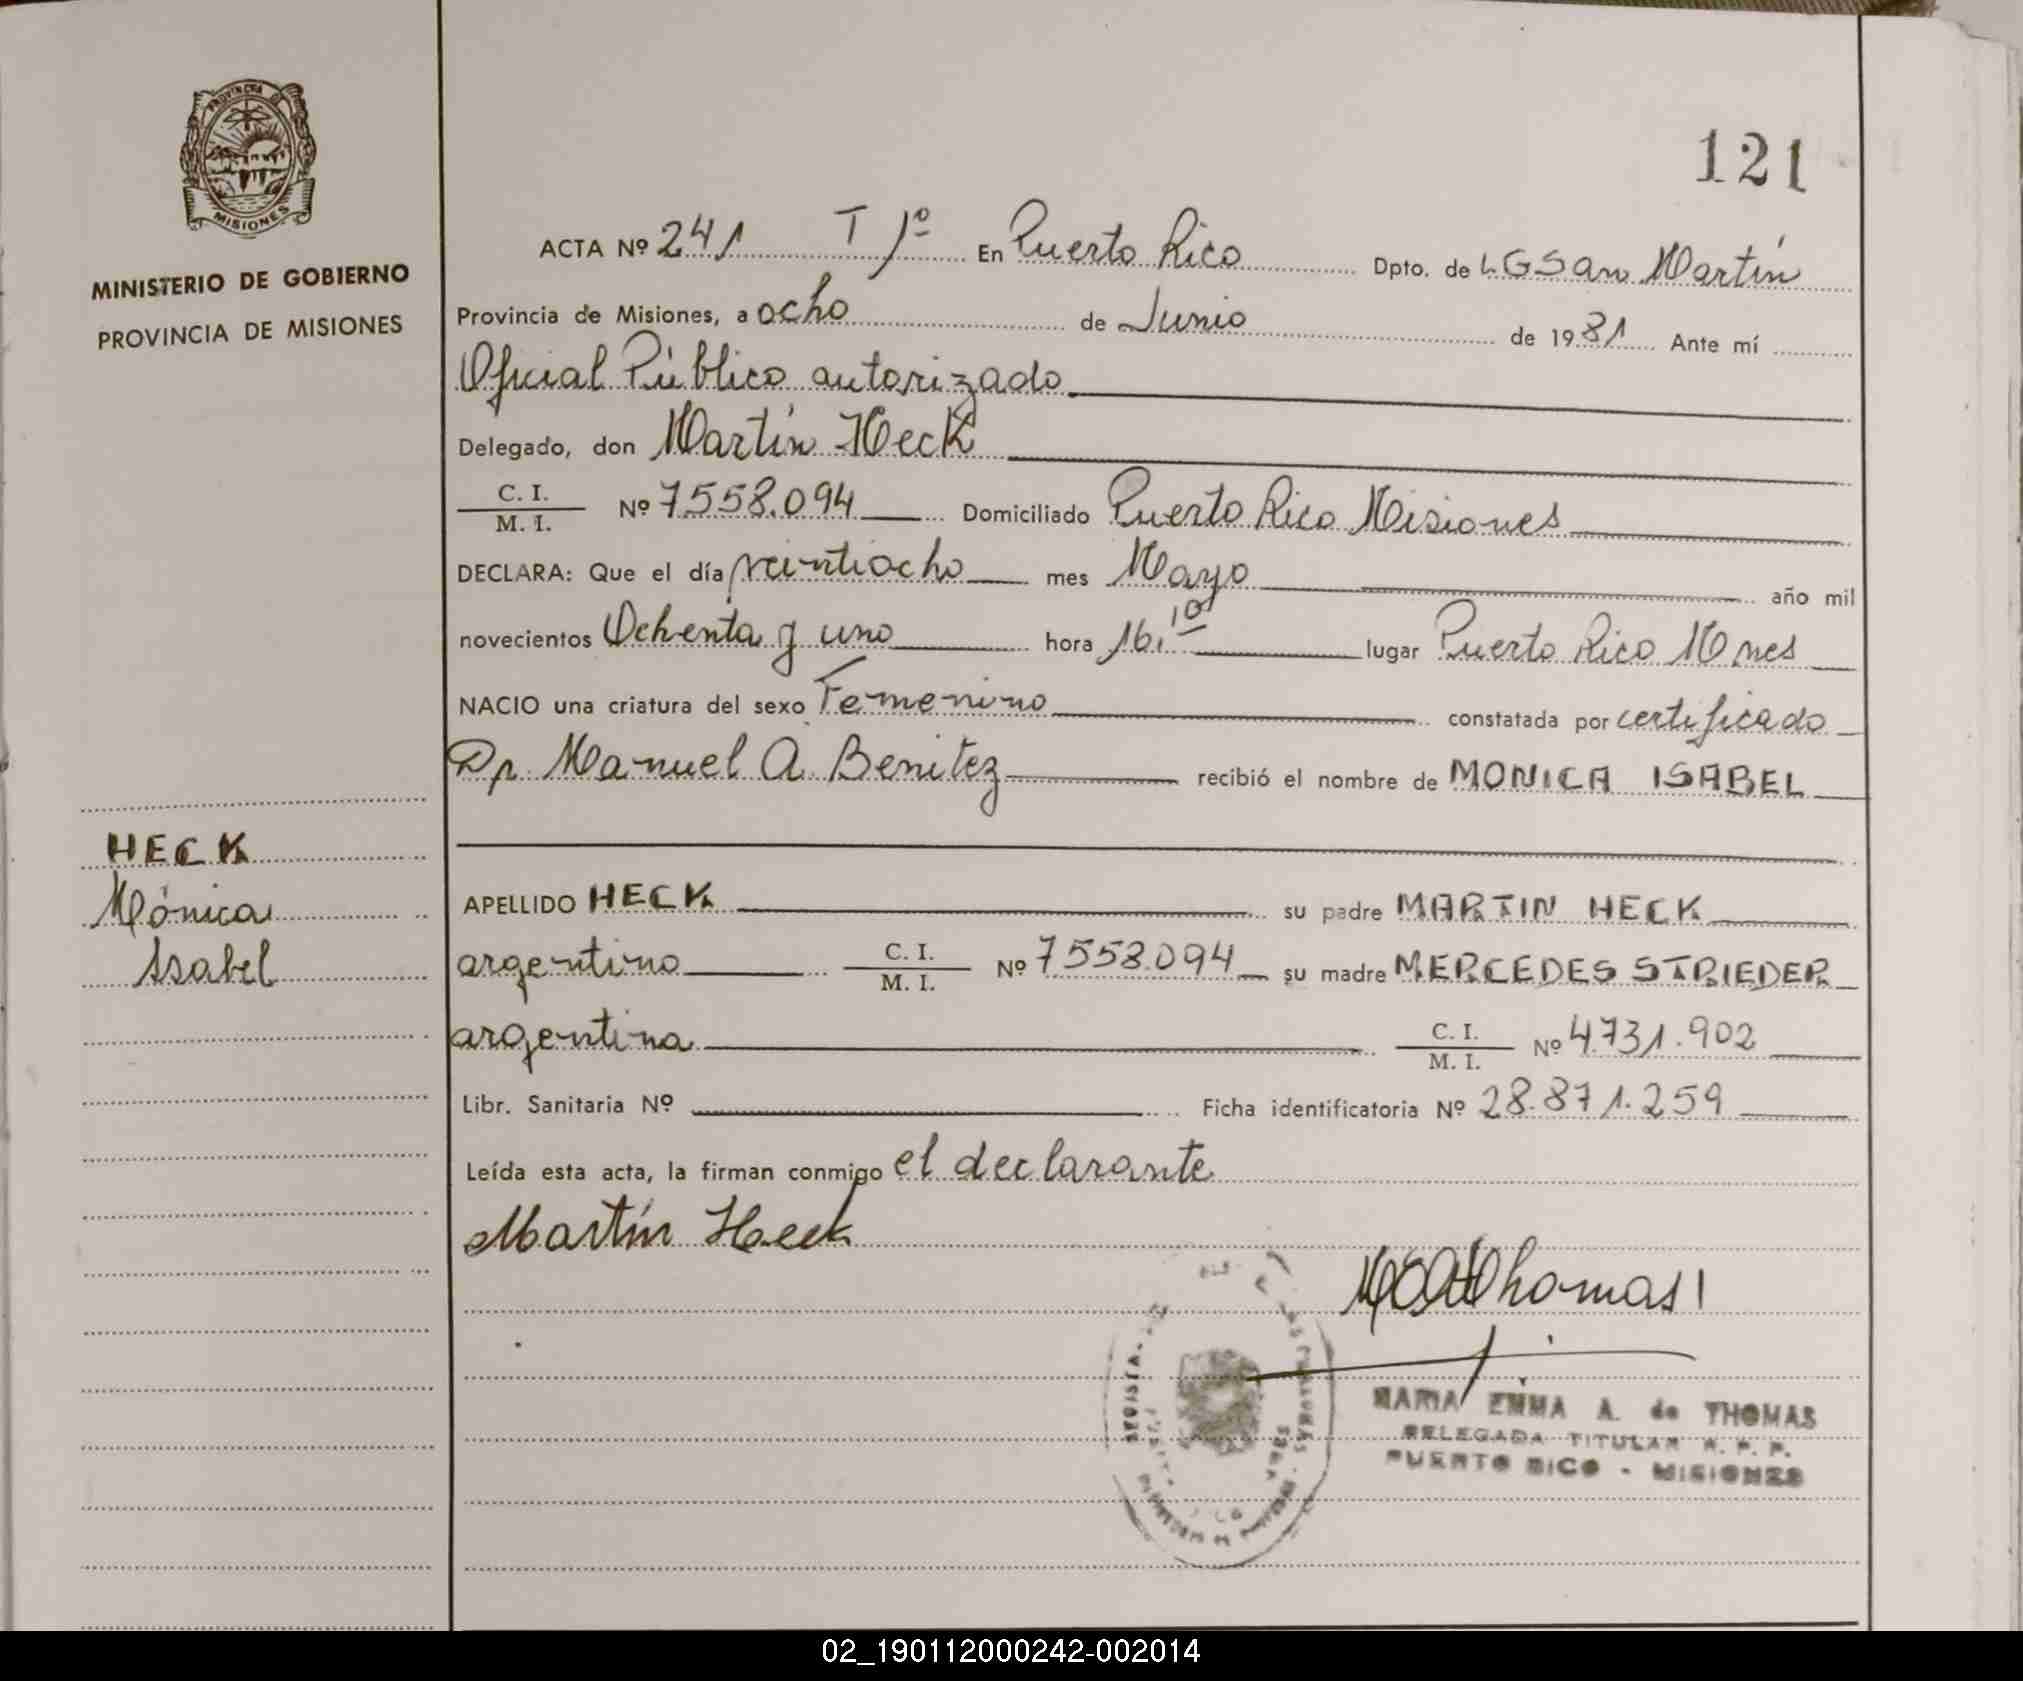 PROVINCIA DE
MISIONES
MINISTERIO DE GOBIERNO
PROVINCIA DE MISIONES
121
ACTA Nº 241 T 1º En Puerto Rico Dpto. de LGSan Martín
Provincia de Misiones, a ocho de Junio de 1981 Ante mí
Oficial Público autorizado
Delegado, don Martín Heck
C. I.
M. I. Nº 7558.094 Domiciliado Puerto Rico Misiones
DECLARA: Que el día veintiocho mes Mayo año mil
novecientos Ochenta y uno hora 16.10 lugar Puerto Rico Mnes
NACIO una criatura del sexo Femenino constatada por certificado
Dr. Manuel A. Benitez recibió el nombre de MONICA ISABEL
HECK
Mónica
Isabel
APELLIDO HECK su padre MARTIN HECK
argentino C. I.
M. I. Nº 7558.094 su madre MERCEDES STRIEDER
argentina C. I.
M. I. Nº 4.731.902
Libr. Sanitaria Nº Ficha identificatoria Nº 28.871.259
Leída esta acta, la firman conmigo el declarante
Martín Heck
MEAdThomas
MARIA EMMA A. de THOMAS
DELEGADA TITULAR R. P. P.
PUERTO RICO - MISIONES
02_190112000242-002014